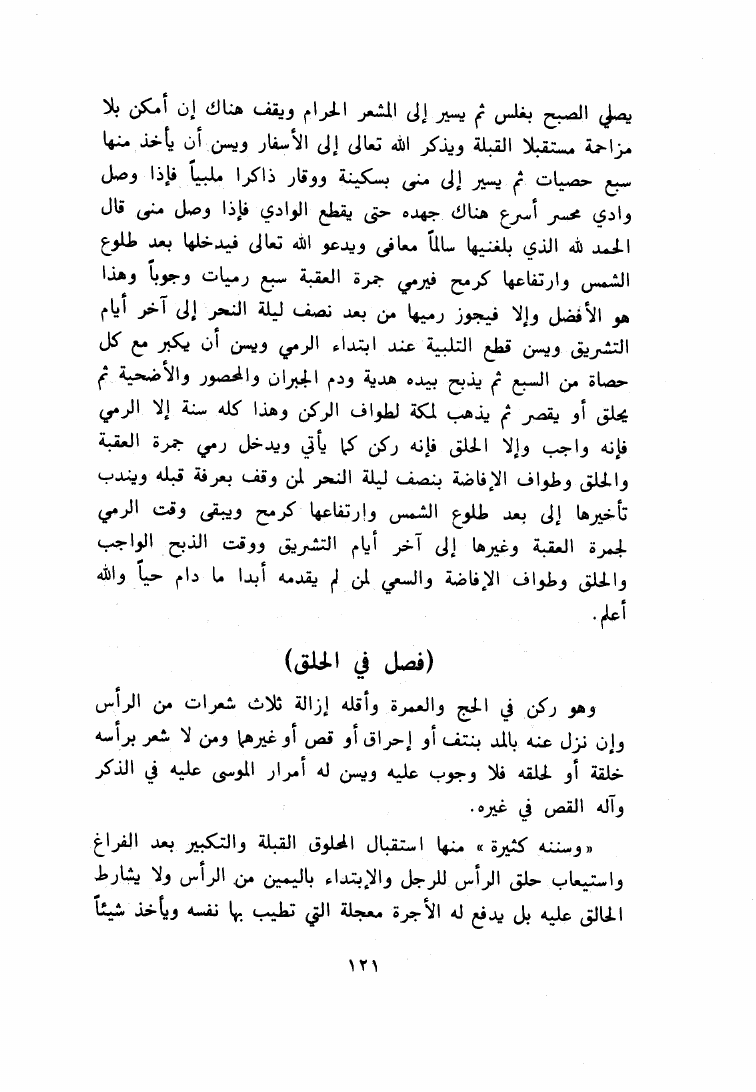 يصلي الصبح بغلس ثم يسير إلى المشعر الحرام ويقف هناك إن أمكن بلا
مزاحمة مستقبلا القبلة ويذكر الله تعالى إلى الأسفار ويسن أن يأخذ منها
سبع حصيات ثم يسير إلى منى بسكينة ووقار ذاكرا ملبياً فإذا وصل
وادي محسر أسرع هناك جهده حتى يقطع الوادي فإذا وصل منى قال
الحمد لله الذي بلغنيها سالماً معافى ويدعو الله تعالى فيدخلها بعد طلوع
الشمس وارتفاعها كرمح فيرمي جمرة العقبة سبع رميات وجوباً وهذا
هو الأفضل وإلا فيجوز رميها من بعد نصف ليلة النحر إلى آخر أيام
التشريق ويسن قطع التلبية عند ابتداء الرمي ويسن أن يكبر مع كل
حصاة من السبع ثم يذبح بيده هدية ودم الجبران والمحصور والأضحية ثم
يحلق أو يقصر ثم يذهب لمكة لطواف الركن وهذا كله سنة إلا الرمي
فإنه واجب وإلا الحلق فإنه ركن كما يأتي ويدخل رمي جمرة العقبة
والحلق وطواف الإفاضة بنصف ليلة النحر لمن وقف بعرفة قبله ويندب
تأخيرها إلى بعد طلوع الشمس وارتفاعها كرمح ويبقى وقت الرمي
لجمرة العقبة وغيرها إلى آخر أيام التشريق ووقت الذبح الواجب
والحلق وطواف الإفاضة والسعي لمن لم يقدمه أبدا ما دام حياً والله
أعلم.
(فصل في الحلق)
وهو ركن في الحج والعمرة وأقله إزالة ثلاث شعرات من الرأس
وإن نزل عنه بالمد بنتف أو إحراق أو قص أو غيرهما ومن لا شعر برأسه
خلقة أو لحلقه فلا وجوب عليه ويسن له أمرار الموسى عليه في الذكر
وآله القص في غيره.
«وسننه كثيرة» منها استقبال المحلوق القبلة والتكبير بعد الفراغ
واستيعاب حلق الرأس للرجل والإبتداء باليمين من الرأس ولا يشارط
الحالق عليه بل يدفع له الأجرة معجلة التي تطيب بها نفسه ويأخذ شيئاً
١٢١